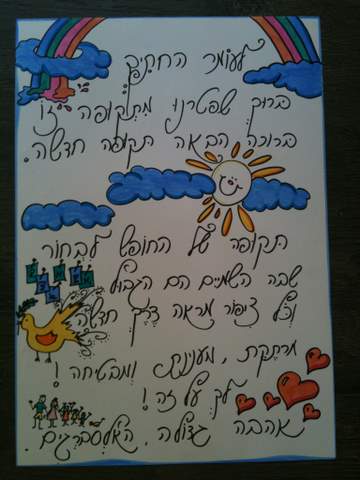 לעומר החתיך
ברוך שפטרנו מתקופה זו
ברוכה הבאה תקופה חדשה.
תקופה של החופש לבחור
שבה השמיים הם הגבול
וכל ציפור מראה דרך חדשה,
מרתקת, מעניינת ומבטיחה!
לך על זה!
אהבה גדולה, האלסברגים.